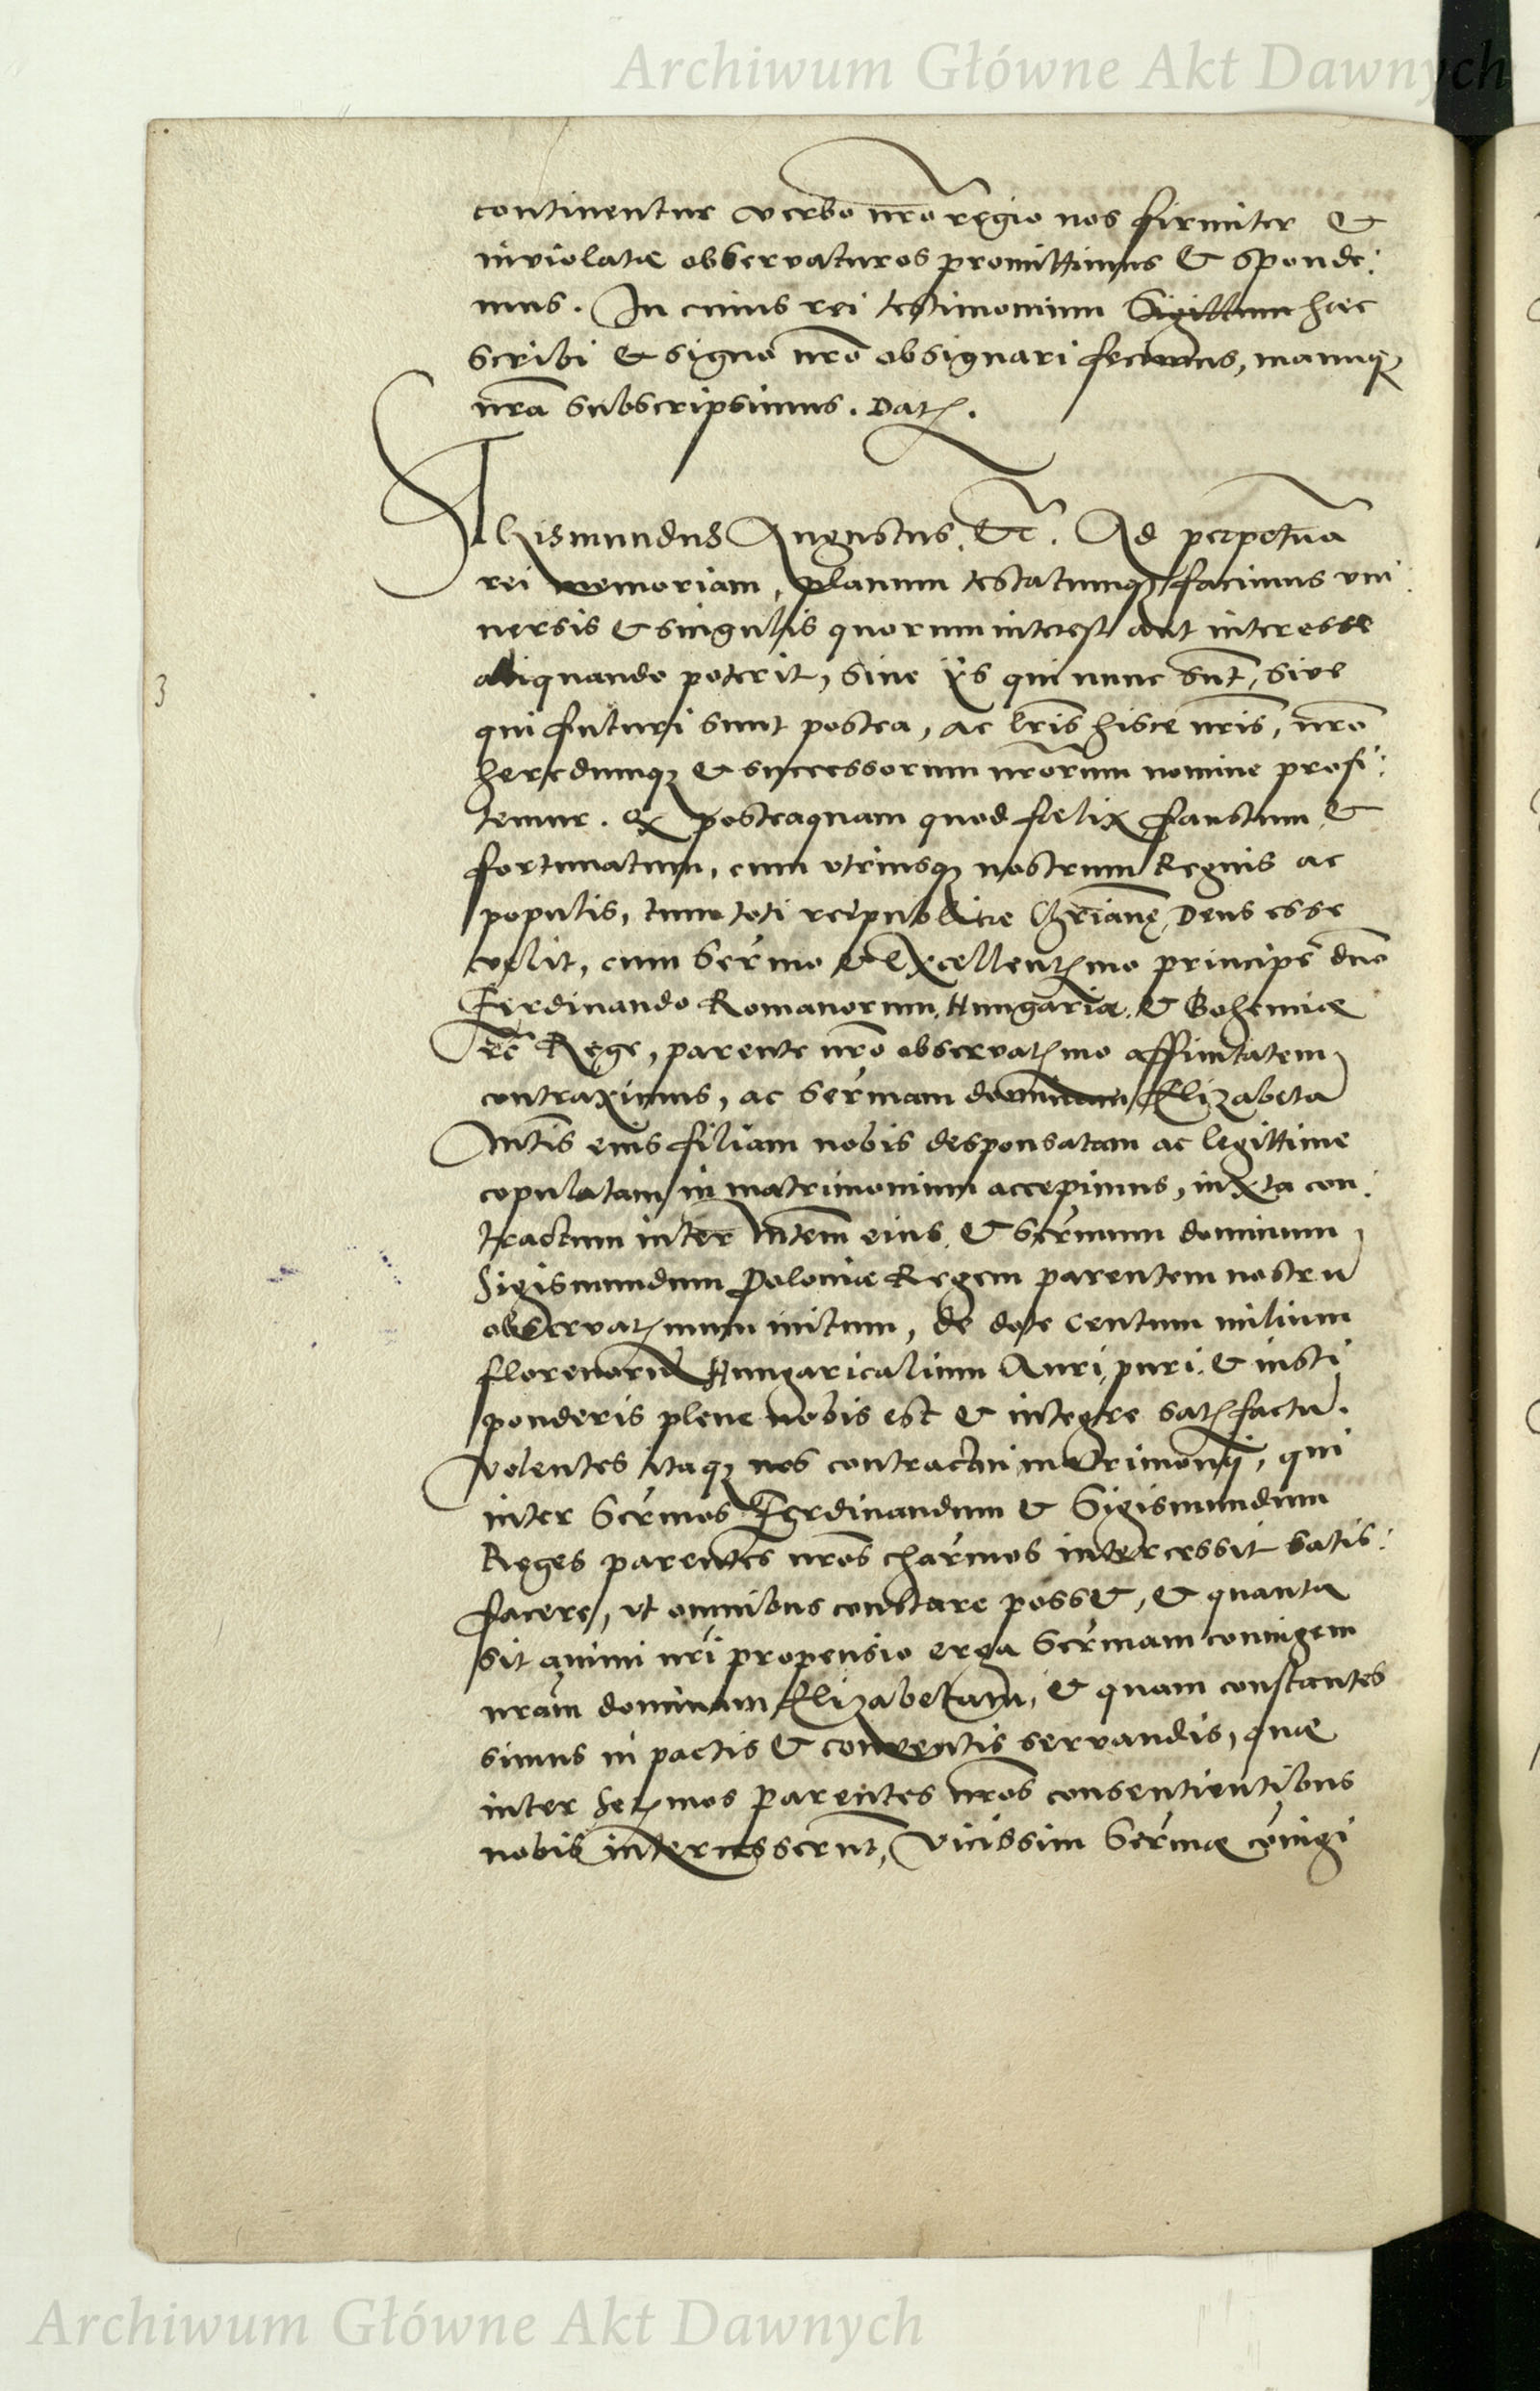 Archiwum Główne Akt Dawnych
continentur verbo nr̃o regio nos firmiter &
inviolatæ observaturos promittimus & sponde:
mus. In cuius rei testimonium Sigillum hac
scribi & signo nr̃o obsignari fecimus, manuq;
nr̃a subscripsimus. Dat.
Sigismundus Augustus, &c̃. Ad perpetuã
rei memoriam, planum testatumq; facimus vni
uersis & singulis quorum interest aut interesse
aliquando poterit, siue ijs qui nunc sũt, sive
3
qui futuri sunt postea, ac lr̃is hisce nr̃is, nr̃o
heredumq; & successorum nr̃orum nomine profi:
temur. q posteaquam quod fœlix faustum &
fortunatum, cum vtriusq; nostrum Regnis ac
populis, tum toti reipublicæ Chr̃ianę Deus esse
velit, cum Serm̃o & Excellentmo principe dño
Ferdinando Romanorum, Hungariæ. & Bohemiæ
ec̃ Rege, parente nr̃o observatmo affinitatem
contraximus, ac Sermam dominam Elizabetã
Mtis eius filiam nobis desponsatam ac legittime
copulatam in matrimonium accepimus, iuxta con:
tractum inter Mtem eius, & Sermum dominum
Sigismundum Poloniæ Regem parentem nostrũ
observatmum initum, de dote centum milium
florenorũ Hungaricalium Auri, puri. & iusti
ponderis plene nobis est & integre satfactũ.
Volentes itaq; nos contractui matrimonij, qui
inter Sermos Ferdinandum & Sigismundum
Reges parentes nr̃os charmos intercessit satis:
facere, vt omnibus constare possit, & quanta
sit animi nr̃i propensio erga Sermam coniugem
nram dominam Elizabetam, & quam constantes
simus in pactis & conventis servandis, quæ
inter Sermos parentes nr̃os consentientibus
nobis intercesserũt, Vicissim Sermæ cõiugi
Archiwum Główne Akt Dawnych